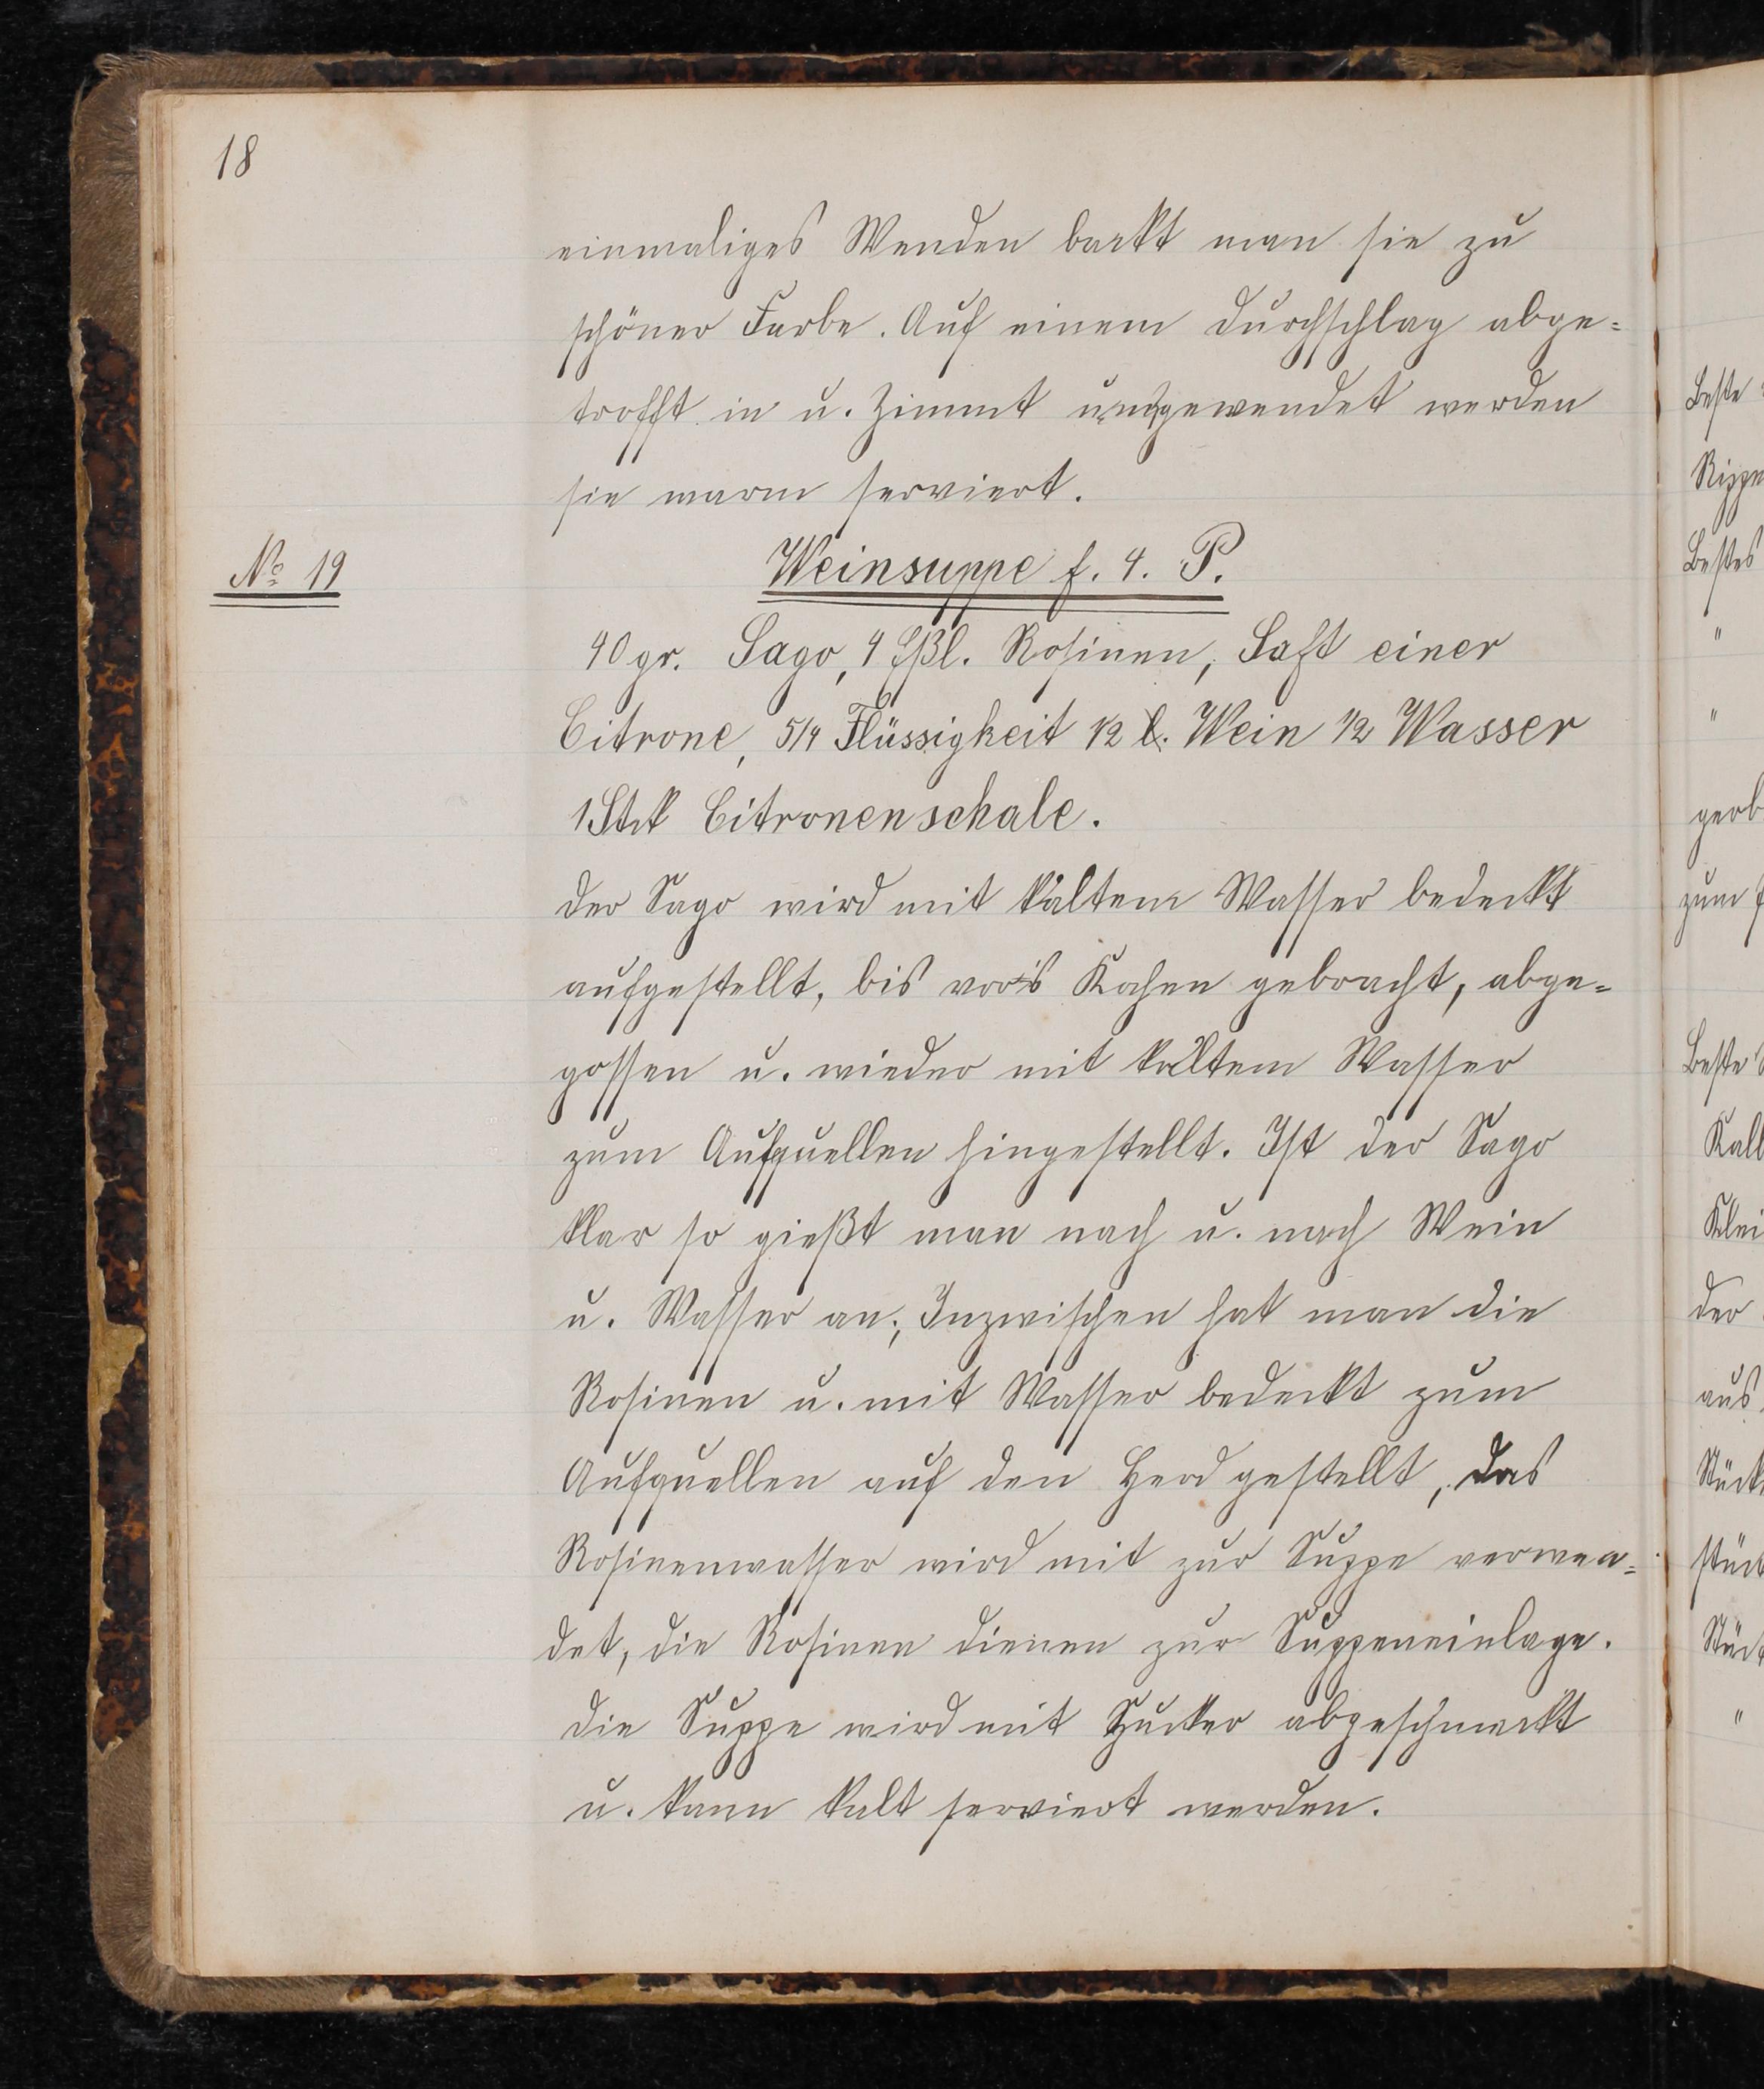 18
einmaliges Wenden backt man sie zu
schöner Farbe. Auf einem Durchschlag abge=
trofft in u. Zimmt umgewendet werden
sie warm serviert.
No 19
Weinsuppe f. 4. P.
40 gr. Sago, 4 Eßl. Rosinen, Saft einer
Citrone, 5/4 Flüssigkeit 1/2 l. Wein 1/2 Wasser
1 Stck Citronenschale.
Der Sago wird mit kaltem Wasser bedeckt
aufgestellt, bis vor's Kochen gebracht, abge=
gossen u. wieder mit kaltem Wasser
zum Aufquellen hingestellt. Ist der Sago
klar so gießt man nach u. nach Wein
u. Wasser an; Inzwischen hat man die
Rosinen u. mit Wasser bedeckt zum
Aufquellen auf den Herd gestellt, das
Rosinenwasser wird mit zur Suppe verwen=
det, die Rosinen dienen zur Suppeneinlage.
Die Suppe wird mit Zucker abgeschmeckt
u. kann kalt serviert werden.
Beste
Rippe
Bestes
"
"
gerb
zum
Beste
Kalb
Klei
der
aus
Stück
stück
Stück
"